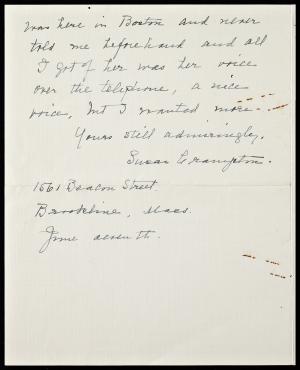 was here in Boston and never
told me beforehand and all
I got of her was her voice
over the telephone, a nice
voice, but I wanted more.
Yours still admiringly,
Susan Crampton.
1561 Beacon Street.
Brookline, Mass.
June seventh.